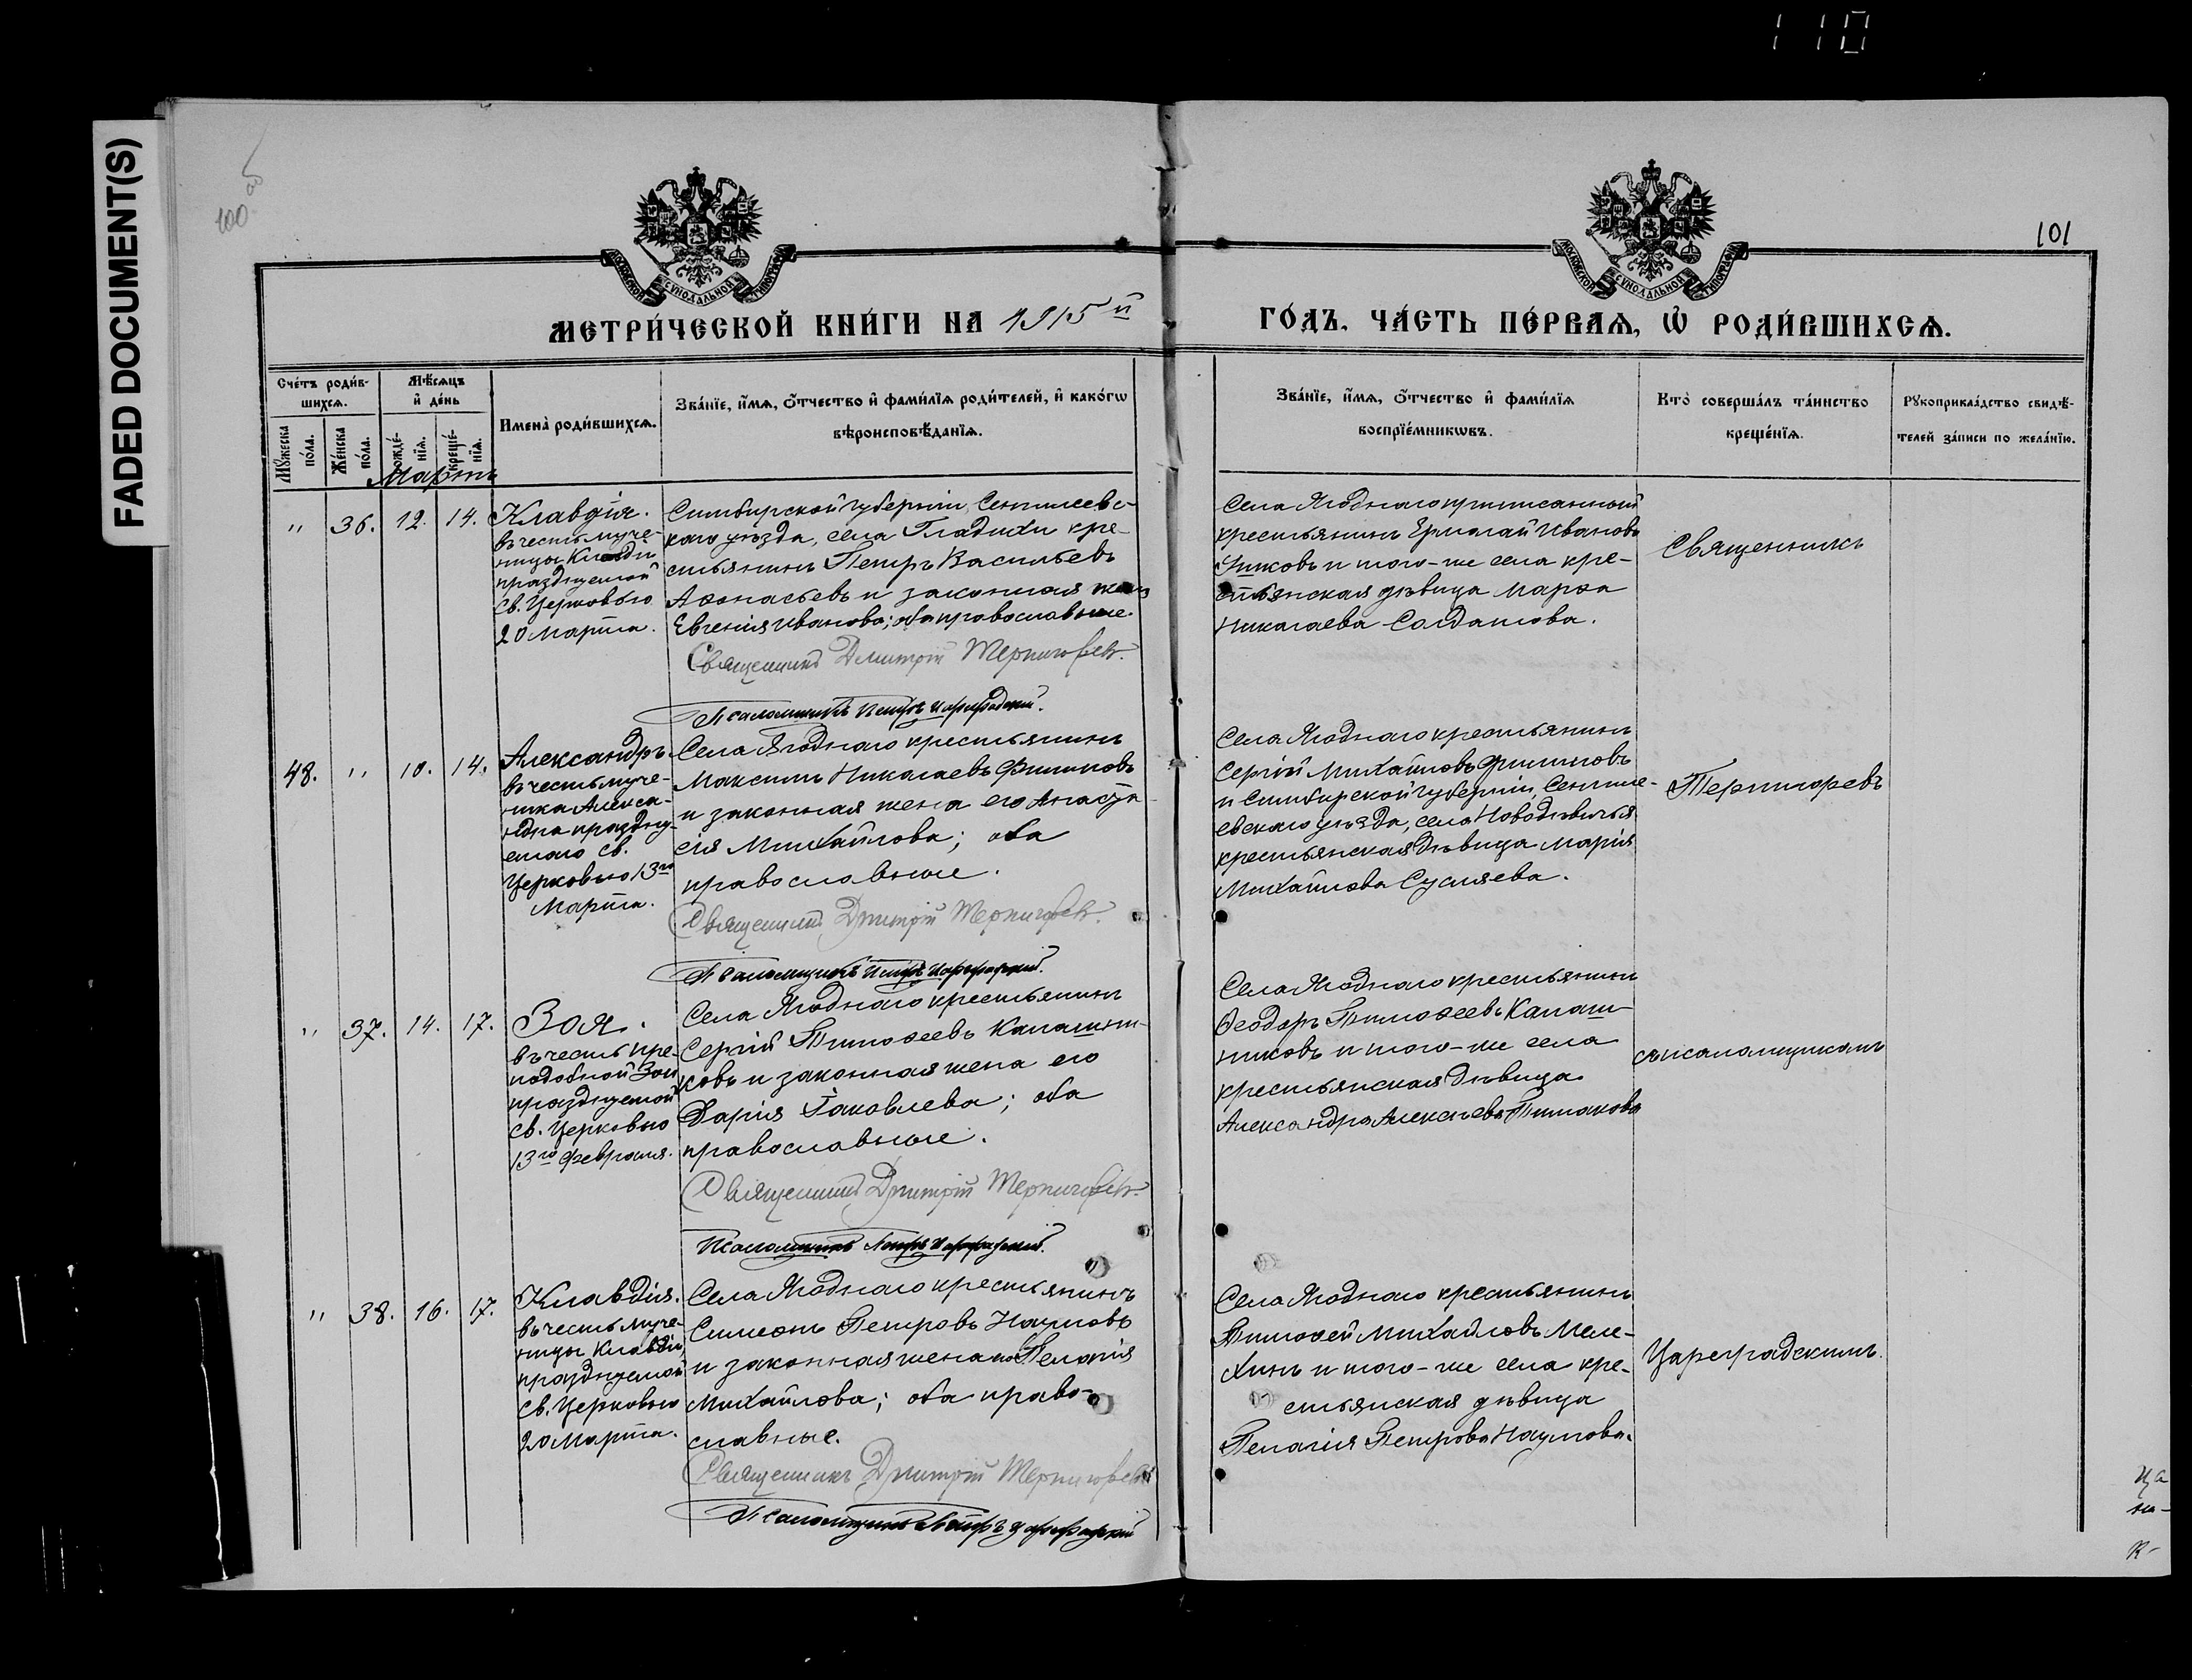 110
FADED DOCUMENT(S)
100 об
101
МОСКОВСКОЙ СѴНОДАЛЬНОЙ ТИПОГРАФІИ
МОСКОВСКОЙ СѴНОДАЛЬНОЙ ТИПОГРАФІИ
МЕТРИ́ЧЕСКОЙ КНИ́ГИ НА 1915 й
ГО́ДЪ, ЧА́СТЬ ПЕ́РВАѦ, Ѡ҆ РОДИ́ВШИХСѦ.
Сче́тъ роди́в-
шихсѧ.
Мꙋ́жеска по́ла.
Же́нска по́ла.
Мѣ́сѧцъ
и҆ де́нь
рожде́-
нїѧ.
креще́-
нїѧ.
Имена̀ роди́вшихсѧ.
Зва́нїе, и҆́мѧ, ѻ҆́тчество и҆ фами́лїѧ роди́телей, и҆ како́гѡ
вѣроисповѣ́данїѧ.
Зва́нїе, и҆́мѧ, ѻ҆́тчество и҆ фами́лїѧ
воспрїе́мникѡвъ.
Кто̀ соверша́лъ та́инство
креще́нїѧ.
Рꙋкоприкла́дство свидѣ́-
телей за́писи по жела́нїю.
Мартъ
" 36. 12. 14.
Клавдія.
въ честь муче-
ницы Клавдіи
празднуемой
Св. Церковью
20 марта.
Симбирской губерніи, Сенгилеевс-
кого уѣзда, села Гладихи кре-
стьянинъ Петръ Васильевъ
Аѳонасьевъ и законная жена
Евгенія Иванова; оба православные.
Священникъ Дмитрій Терпигоревъ.
Псаломщикъ Петръ Цареградскій.
Села Ягоднаго приписанный
крестьянинъ Ермолай Ивановъ
и того-же села кре-
стьянская дѣвица Марѳа
Николаева Солдатова.
Священникъ
48. " 10. 14.
Александръ
въ честь муче-
ника Алекса-
ндра праздну-
емаго Св.
Церковью 13го
Марта.
Села Ягоднаго крестьянинъ
Максимъ Николаевъ Филиповъ
и законная жена его Анаста
сія Михайлова; оба
православные.
Священникъ Дмитрій Терпигоревъ.
Псаломщикъ Петръ Цареградскій.
Села Ягоднаго крестьянинъ
Сергій Михайловъ Филиповъ
и Симбирской губерніи, Сенгиле-
евскаго уѣзда, села Новодѣвичья
крестьянская дѣвица Марія
Михайлова Сусляева.
Терпигоревъ
" 37. 14. 17.
Зоя.
въ честь пре-
подобной Зои
празднуемой
Св. Церковью
13го февраля.
Села Ягоднаго крестьянинъ
Сергій Тимоѳеевъ Калашни-
ковъ и законная жена его
Дарія Іаковлева; оба
православные.
Священникъ Дмитрій Терпигоревъ.
Псаломщикъ Петръ Цареградскій.
Села Ягоднаго крестьянинъ
Ѳеодоръ Тимоѳеевъ Калаш-
никовъ и того-же села
крестьянская дѣвица
Александра Алексѣева Тимакова
съ псаломщикомъ
" 38. 16. 17.
Клавдія.
въ честь муче-
ницы Клавдіи,
празднуемой
Св. Церковью
20 Марта.
Села Ягоднаго крестьянинъ
Симеонъ Петровъ Наумовъ
и законная жена его Пелагія
Михайлова; оба право-
славные.
Священникъ Дмитрій Терпигоревъ
Псаломщикъ Петръ Цареградскій
Села Ягоднаго крестьянинъ
Тимоѳей Михайловъ Меле-
хинъ и того-же села кре-
стьянская дѣвица
Пелагія Петрова Наумова.
Цареградскимъ.